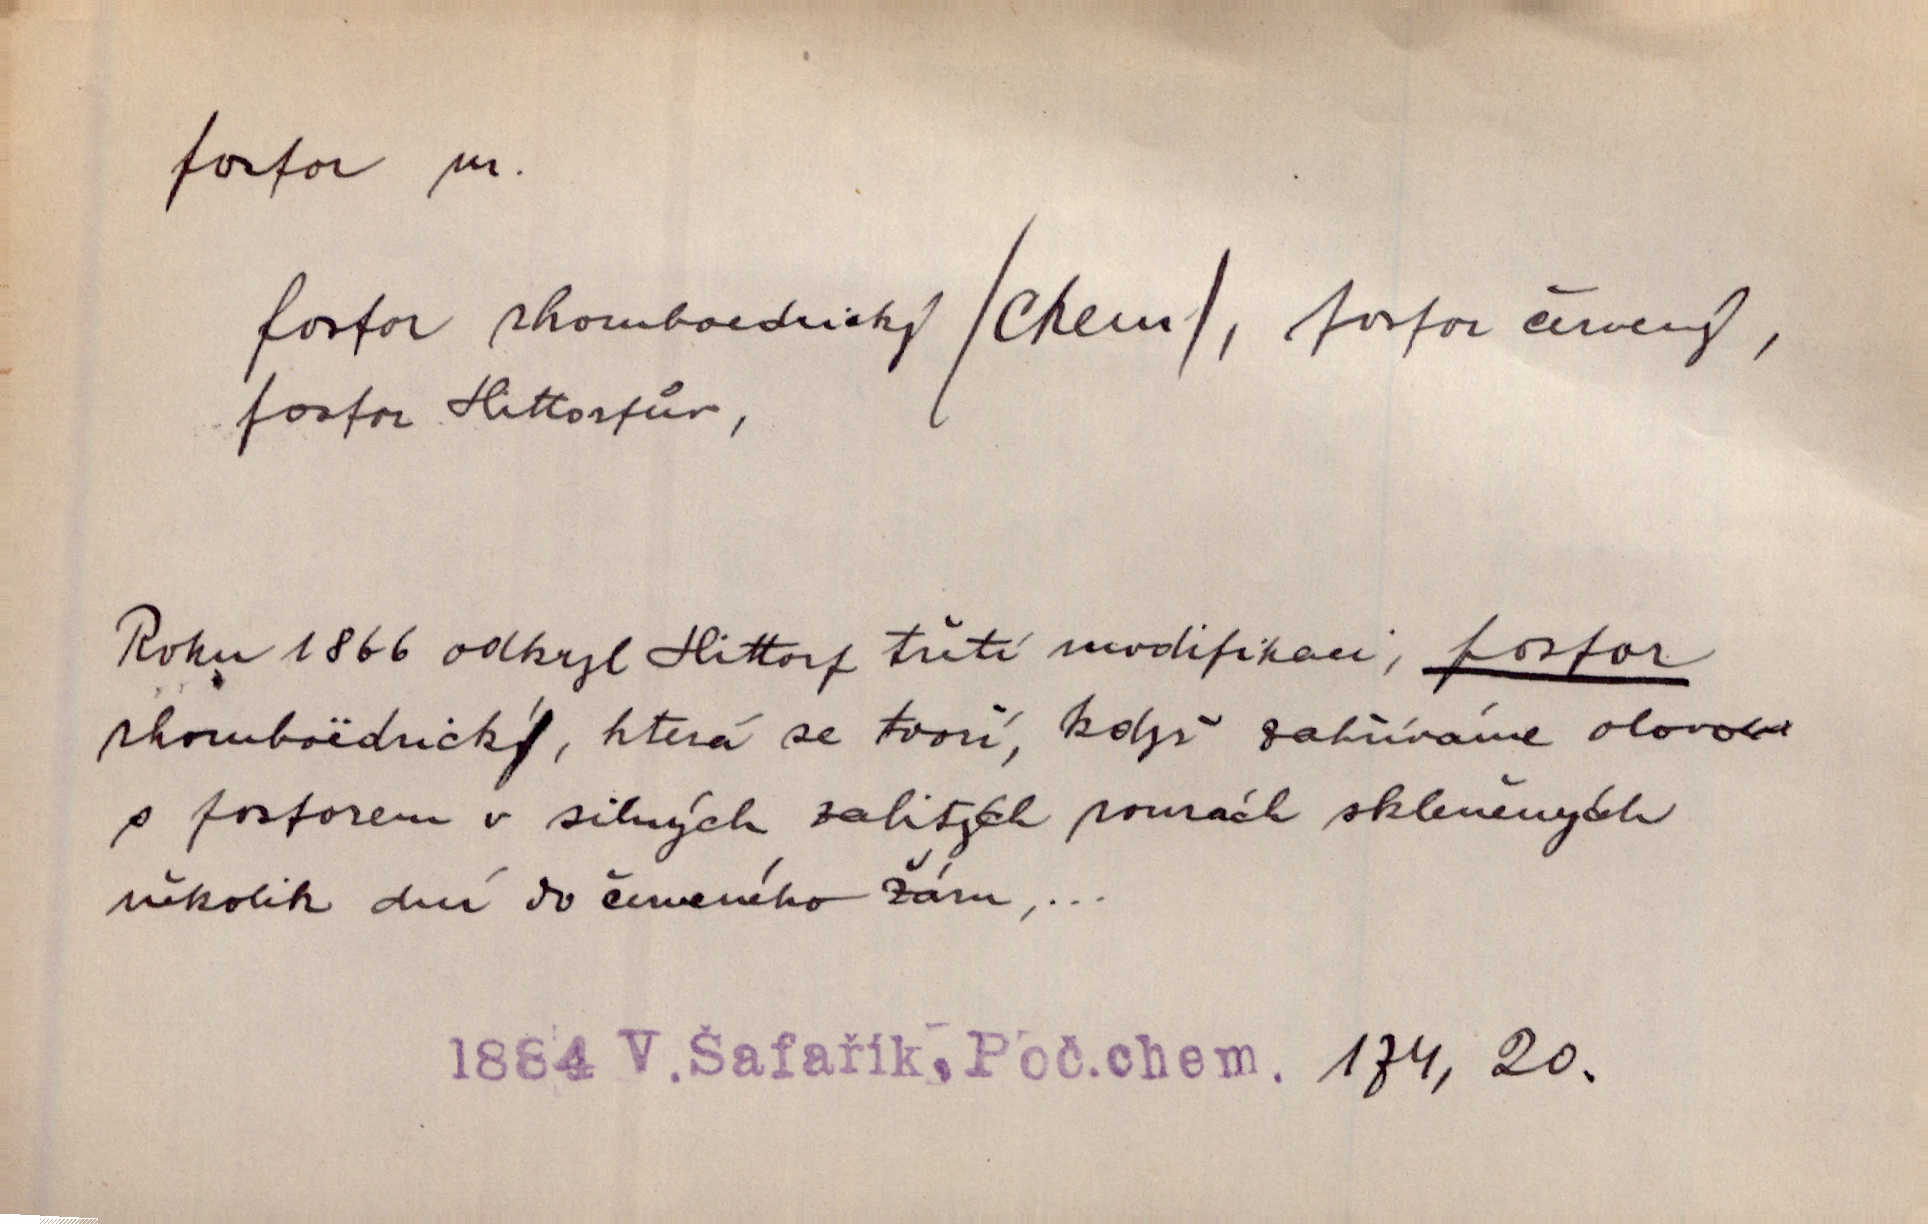 fosfor m.
fosfor rhomboedrický /chem/, fosfor červený,
fosfor Hittorfův,
Roku 1866 odkryl Hittorf třetí modifikaci, fosfor
rhomboëdrický, která se tvoří, když zahříváme olovo
s fosforem v silných zalitých rourách skleněných
několik dní do červeného žáru,...
1884 V.Šafařík, Poč.chem. 174, 20.